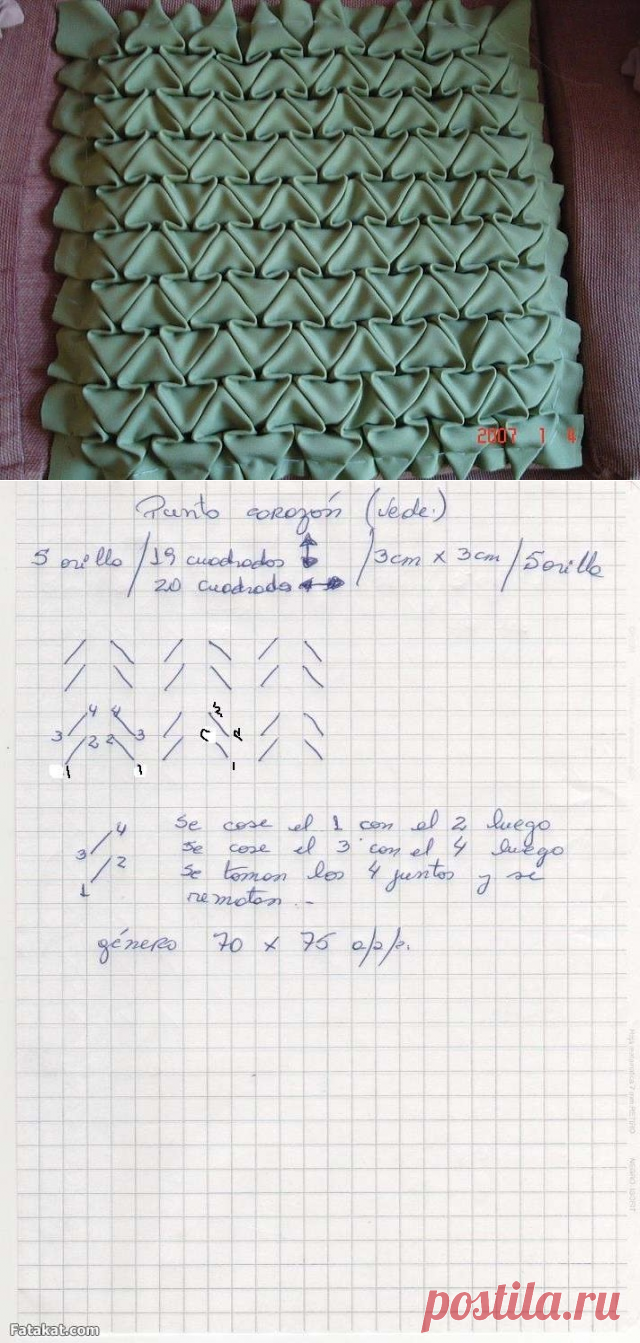 2007 1 4
Punto corozón (sede.)
5 orilla / 19 cuadrados ↕ / 3cm x 3cm / 5 orilla
20 cuadrados ↔
4 4 2
3 2 2 3
1 1 1
4 Se cose el 1 con el 2 luego
3 2 Se cose el 3 con el 4 luego
1 Se toman los 4 juntos y se
rematan..
género 70 x 75 a/p/p.
Fatakat.com
postila.ru